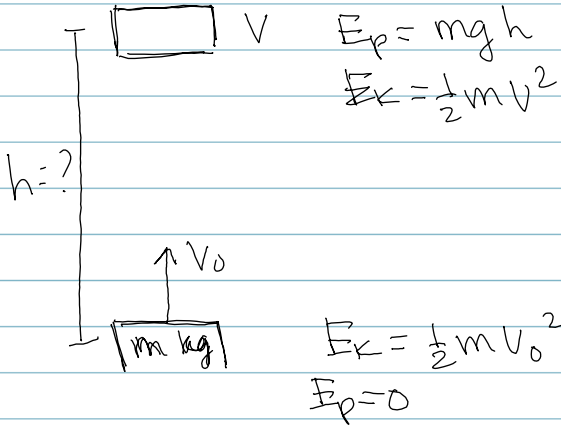 V
Ep = mgh
Ek = ½mv²
h=?
V₀
m kg
Ek = ½mv₀²
Ep=0